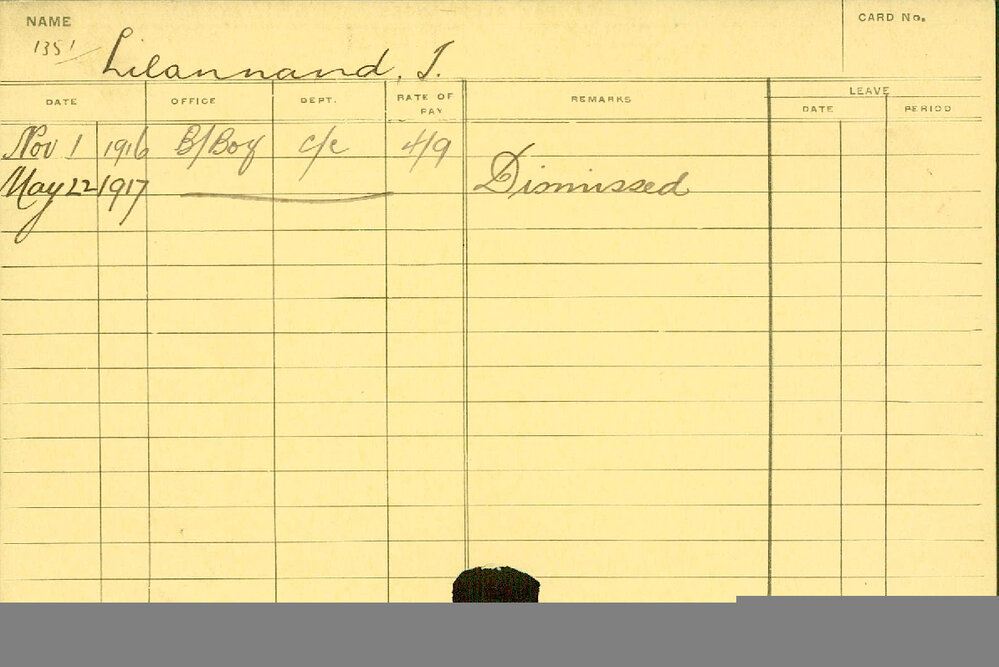 NAME
CARD No.
1351
Lilannand, J.
DATE OFFICE DEPT. RATE OF PAY REMARKS LEAVE
DATE PERIOD
Nov 1 1916 B/Boy c/e 4/9
May 22 1917 Dismissed